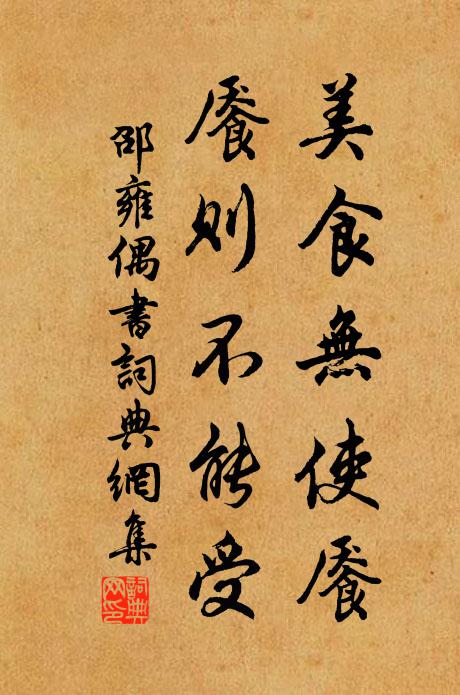 美食無使饜
饜則不能受
邵雍偶書詞典網集
詞典网印